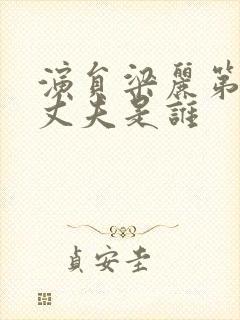 演員梁麗第
丈夫是誰
貞安圭